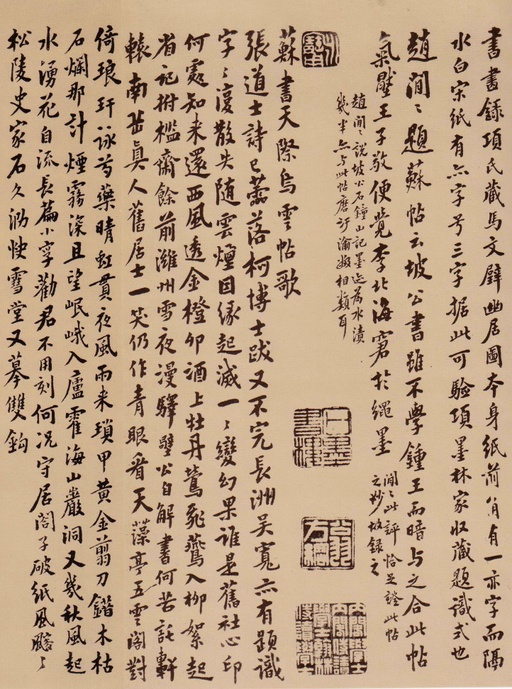 書畫錄項氏藏馬文璧幽居圖本身紙前角有一亦字而隔
水白宋紙有六字号三字據此可驗項墨林家收藏題識式也
趙閒閒題蘇帖云坡公書雖不學鍾王而暗与之合此帖
氣壓王子敬便覺李北海窘於繩墨
閒閒此評恰足證此帖
之妙故錄之
趙閒閒說坡公石鐘山記墨迹為水漬
幾半六与此帖
相類耳
蘇書天際烏雲帖歌
張道士詩已零落柯博士跋又不完長洲吳寬亦有題識
字字復散失隨雲煙因緣起滅一一變幻果誰是舊社心印
何處知来還西風透金橙卯酒上牡丹鶯飛鷺入柳絮起
省記柑檻齋餘前濰州雪夜漫驛壁公自解書何苦託軒
轅南岳真人舊居士一笑仍作青眼看天藻亭五雲閣對
倚琅玕詠芍藥晴虹貫夜風雨来瑣甲黃金翦刀錯木枯
石爛那計煙霧深且望岷峨入廬霍海山巖洞又幾秋風起
水湧花自流長篇小字勸君不用刻何況守居閣子破紙風飀飀
松陵史家石久泐快雪堂又摹雙鉤